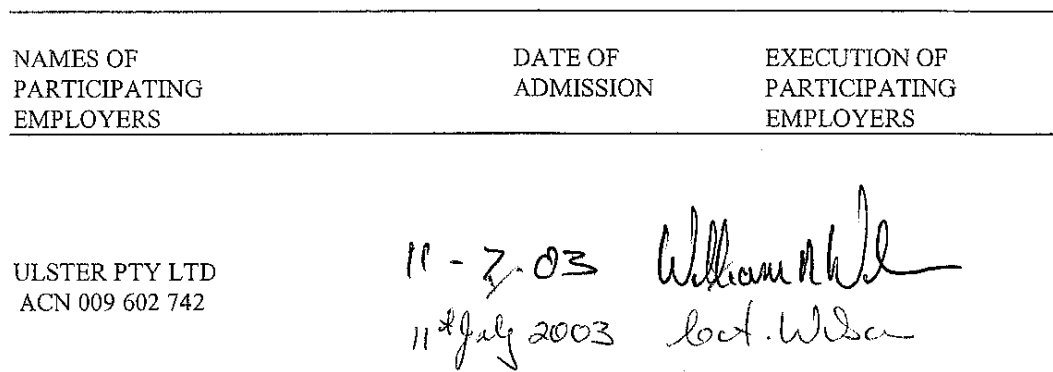 NAMES OF
PARTICIPATING
EMPLOYERS
DATE OF
ADMISSION
EXECUTION OF
PARTICIPATING
EMPLOYERS
ULSTER PTY LTD
ACN 009 602 742
11-7.03
William
11th July 2003
Wilson